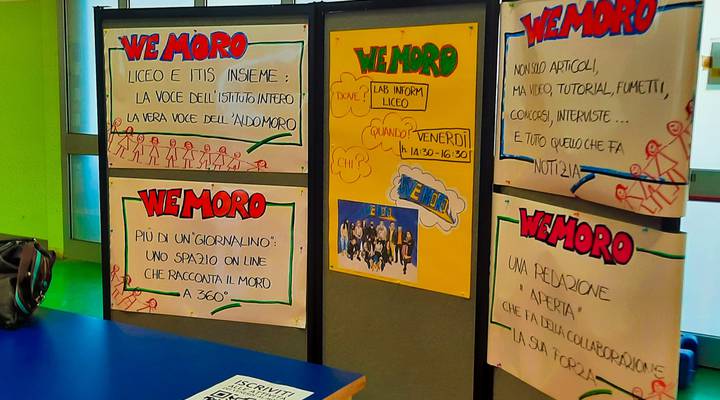 WE MORO
LICEO E ITIS INSIEME:
LA VOCE DELL'ISTITUTO INTERO
LA VERA VOCE DELL'ALDO MORO
WE MORO
PIÙ DI UN "GIORNALINO":
UNO SPAZIO ON LINE
CHE RACCONTA IL MORO
A 360°
WE MORO
DOVE?
LAB INFORM
LICEO
QUANDO?
VENERDÌ
h 14:30-16:30
CHI?
WE MORO
WE MORO
WE MORO
NON SOLO ARTICOLI,
MA VIDEO, TUTORIAL, FUMETTI,
CONCORSI, INTERVISTE...
E TUTTO QUELLO CHE FA
NOTIZIA
WE MORO
UNA REDAZIONE
"APERTA"
CHE FA DELLA COLLABORAZIONE
LA SUA FORZA
ISCRIVITI